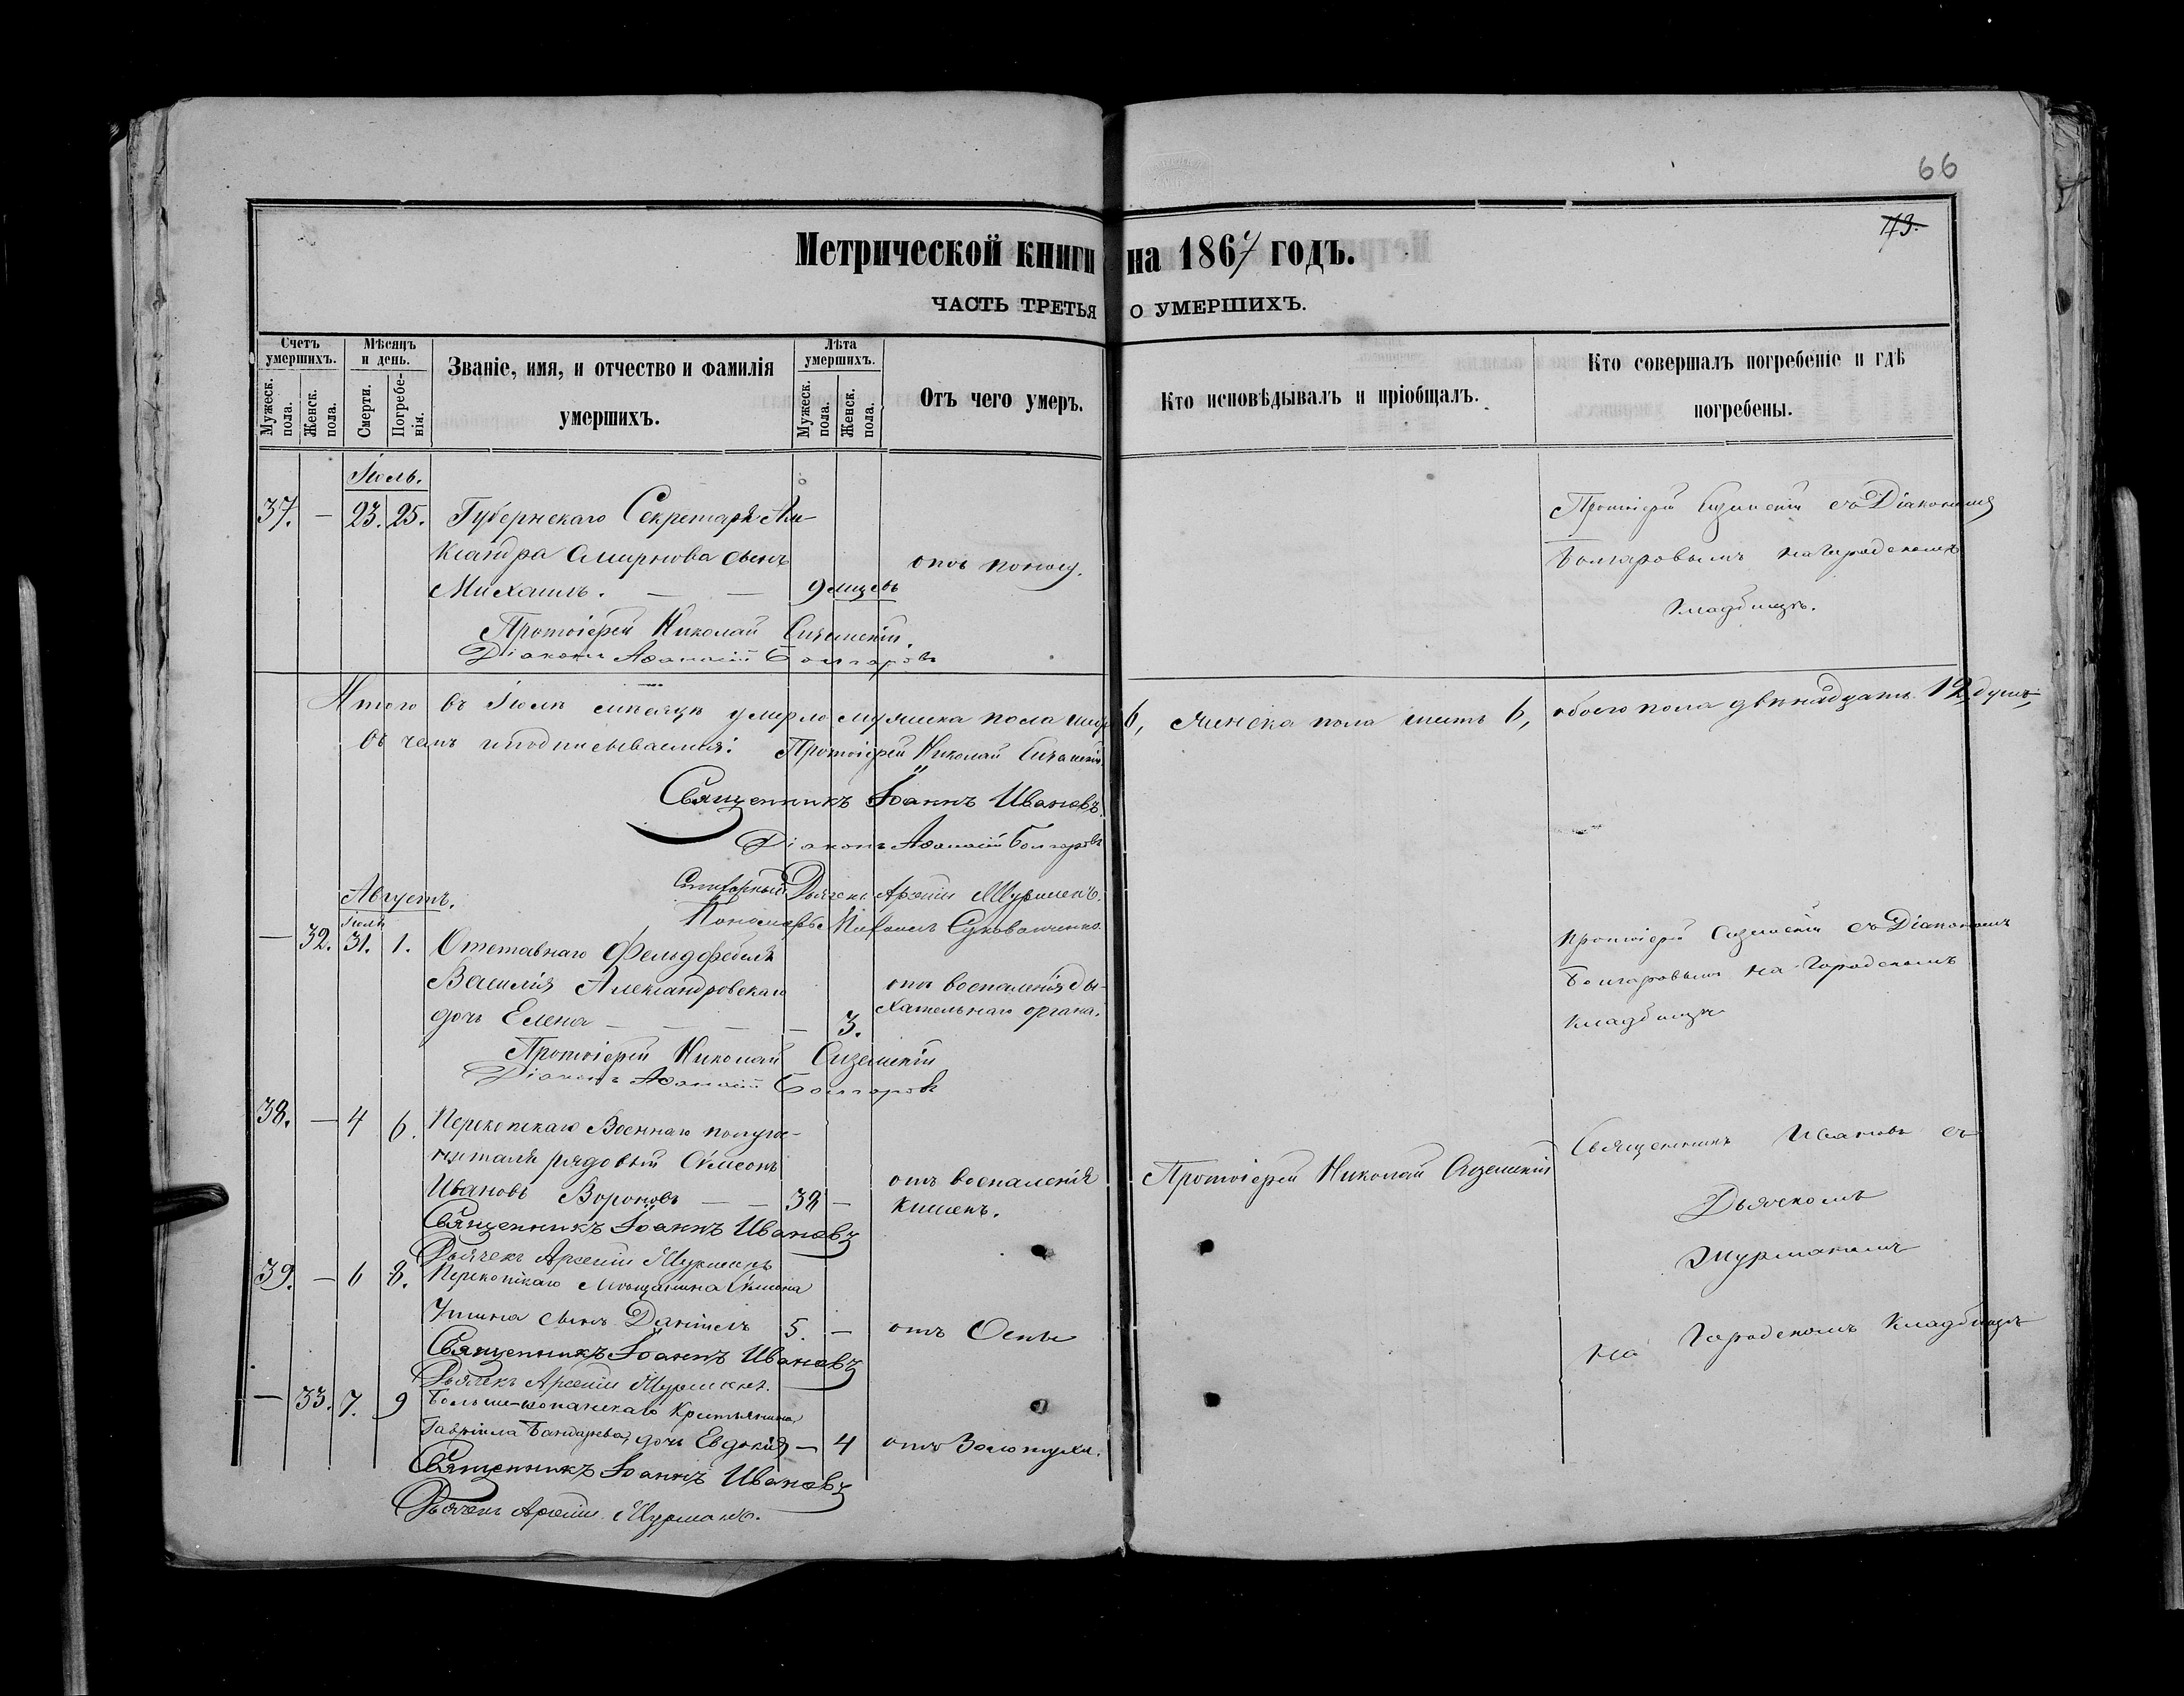 66
173.
Метрической книги на 1867 годъ.
ЧАСТЬ ТРЕТЬЯ О УМЕРШИХЪ.
Счетъ умершихъ.
Мужеск. пола.
Женск. пола.
Мѣсяцъ и день.
Смерти.
Погребенія.
Званіе, имя, и отчество и фамилія
умершихъ.
Лѣта умершихъ.
Мужеск. пола.
Женск. пола.
Отъ чего умеръ.
Кто исповѣдывалъ и пріобщалъ.
Кто совершалъ погребеніе и гдѣ
погребены.
Іюль.
37. — 23. 25. Губернскаго Секретаря Але-
ксандра Смирнова сынъ
Михаилъ. — — 9 мѣсяцъ
отъ поносу.
Протоіерей съ Діакономъ
Болгаровымъ на Городскомъ
Кладбищѣ.
Протоіерей Николай
Діаконъ Аѳанасій Болгаровъ
Итого въ Іюлѣ мѣсяцѣ умерло мужеска пола шесть 6, женска пола шесть 6, обоего пола двѣнадцать 12 душъ,
въ чемъ и подписываемся: Протоіерей Николай
Священникъ Іоаннъ Ивановъ.
Діаконъ Аѳанасій Болгаровъ
Дьячекъ Арсеній
Пономарь
Августъ.
Іюля
— 32. 31. 1. Отставнаго Фельдфебеля
Василія Александровскаго
дочь Елена — — — 3.
отъ воспаленія ды-
хательнаго органа.
Протоіерей съ Діакономъ
Болгаровымъ на Городскомъ
Кладбищѣ
Протоіерей Николай
Діаконъ Аѳанасій Болгаровъ
38. — 4 6. Перекопскаго Военнаго полугос-
питаля рядовый Сѵмеонъ
Ивановъ Вороновъ — — 38 —
отъ воспаленія
кишекъ.
Протоіерей Николай
Священникъ Ивановъ съ
Дьячкомъ
Священникъ Іоаннъ Ивановъ
Дьячекъ Арсеній
39. — 6 8. Перекопскаго Мѣщанина
сынъ Даніилъ 5. — отъ Оспы
На Городскомъ Кладбищѣ
Священникъ Іоаннъ Ивановъ
Дьячекъ Арсеній
— 33. 7. 9 Крестьянина
Гавріила дочь Евдокія — 4 отъ Золотухи.
Священникъ Іоаннъ Ивановъ
Дьячекъ Арсеній